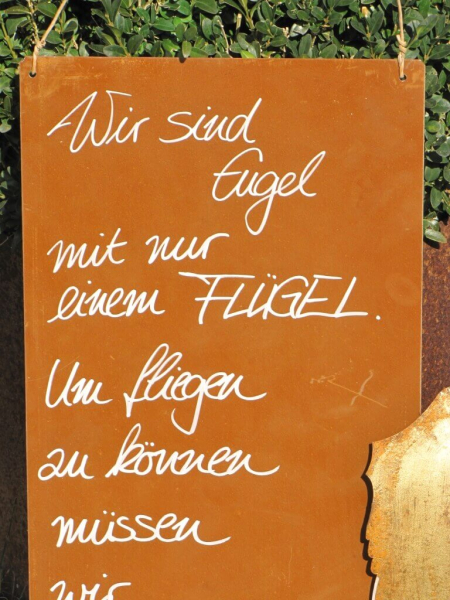 Wir sind
Engel
mit nur
einem FLÜGEL.
Um fliegen
zu können
müssen
wir